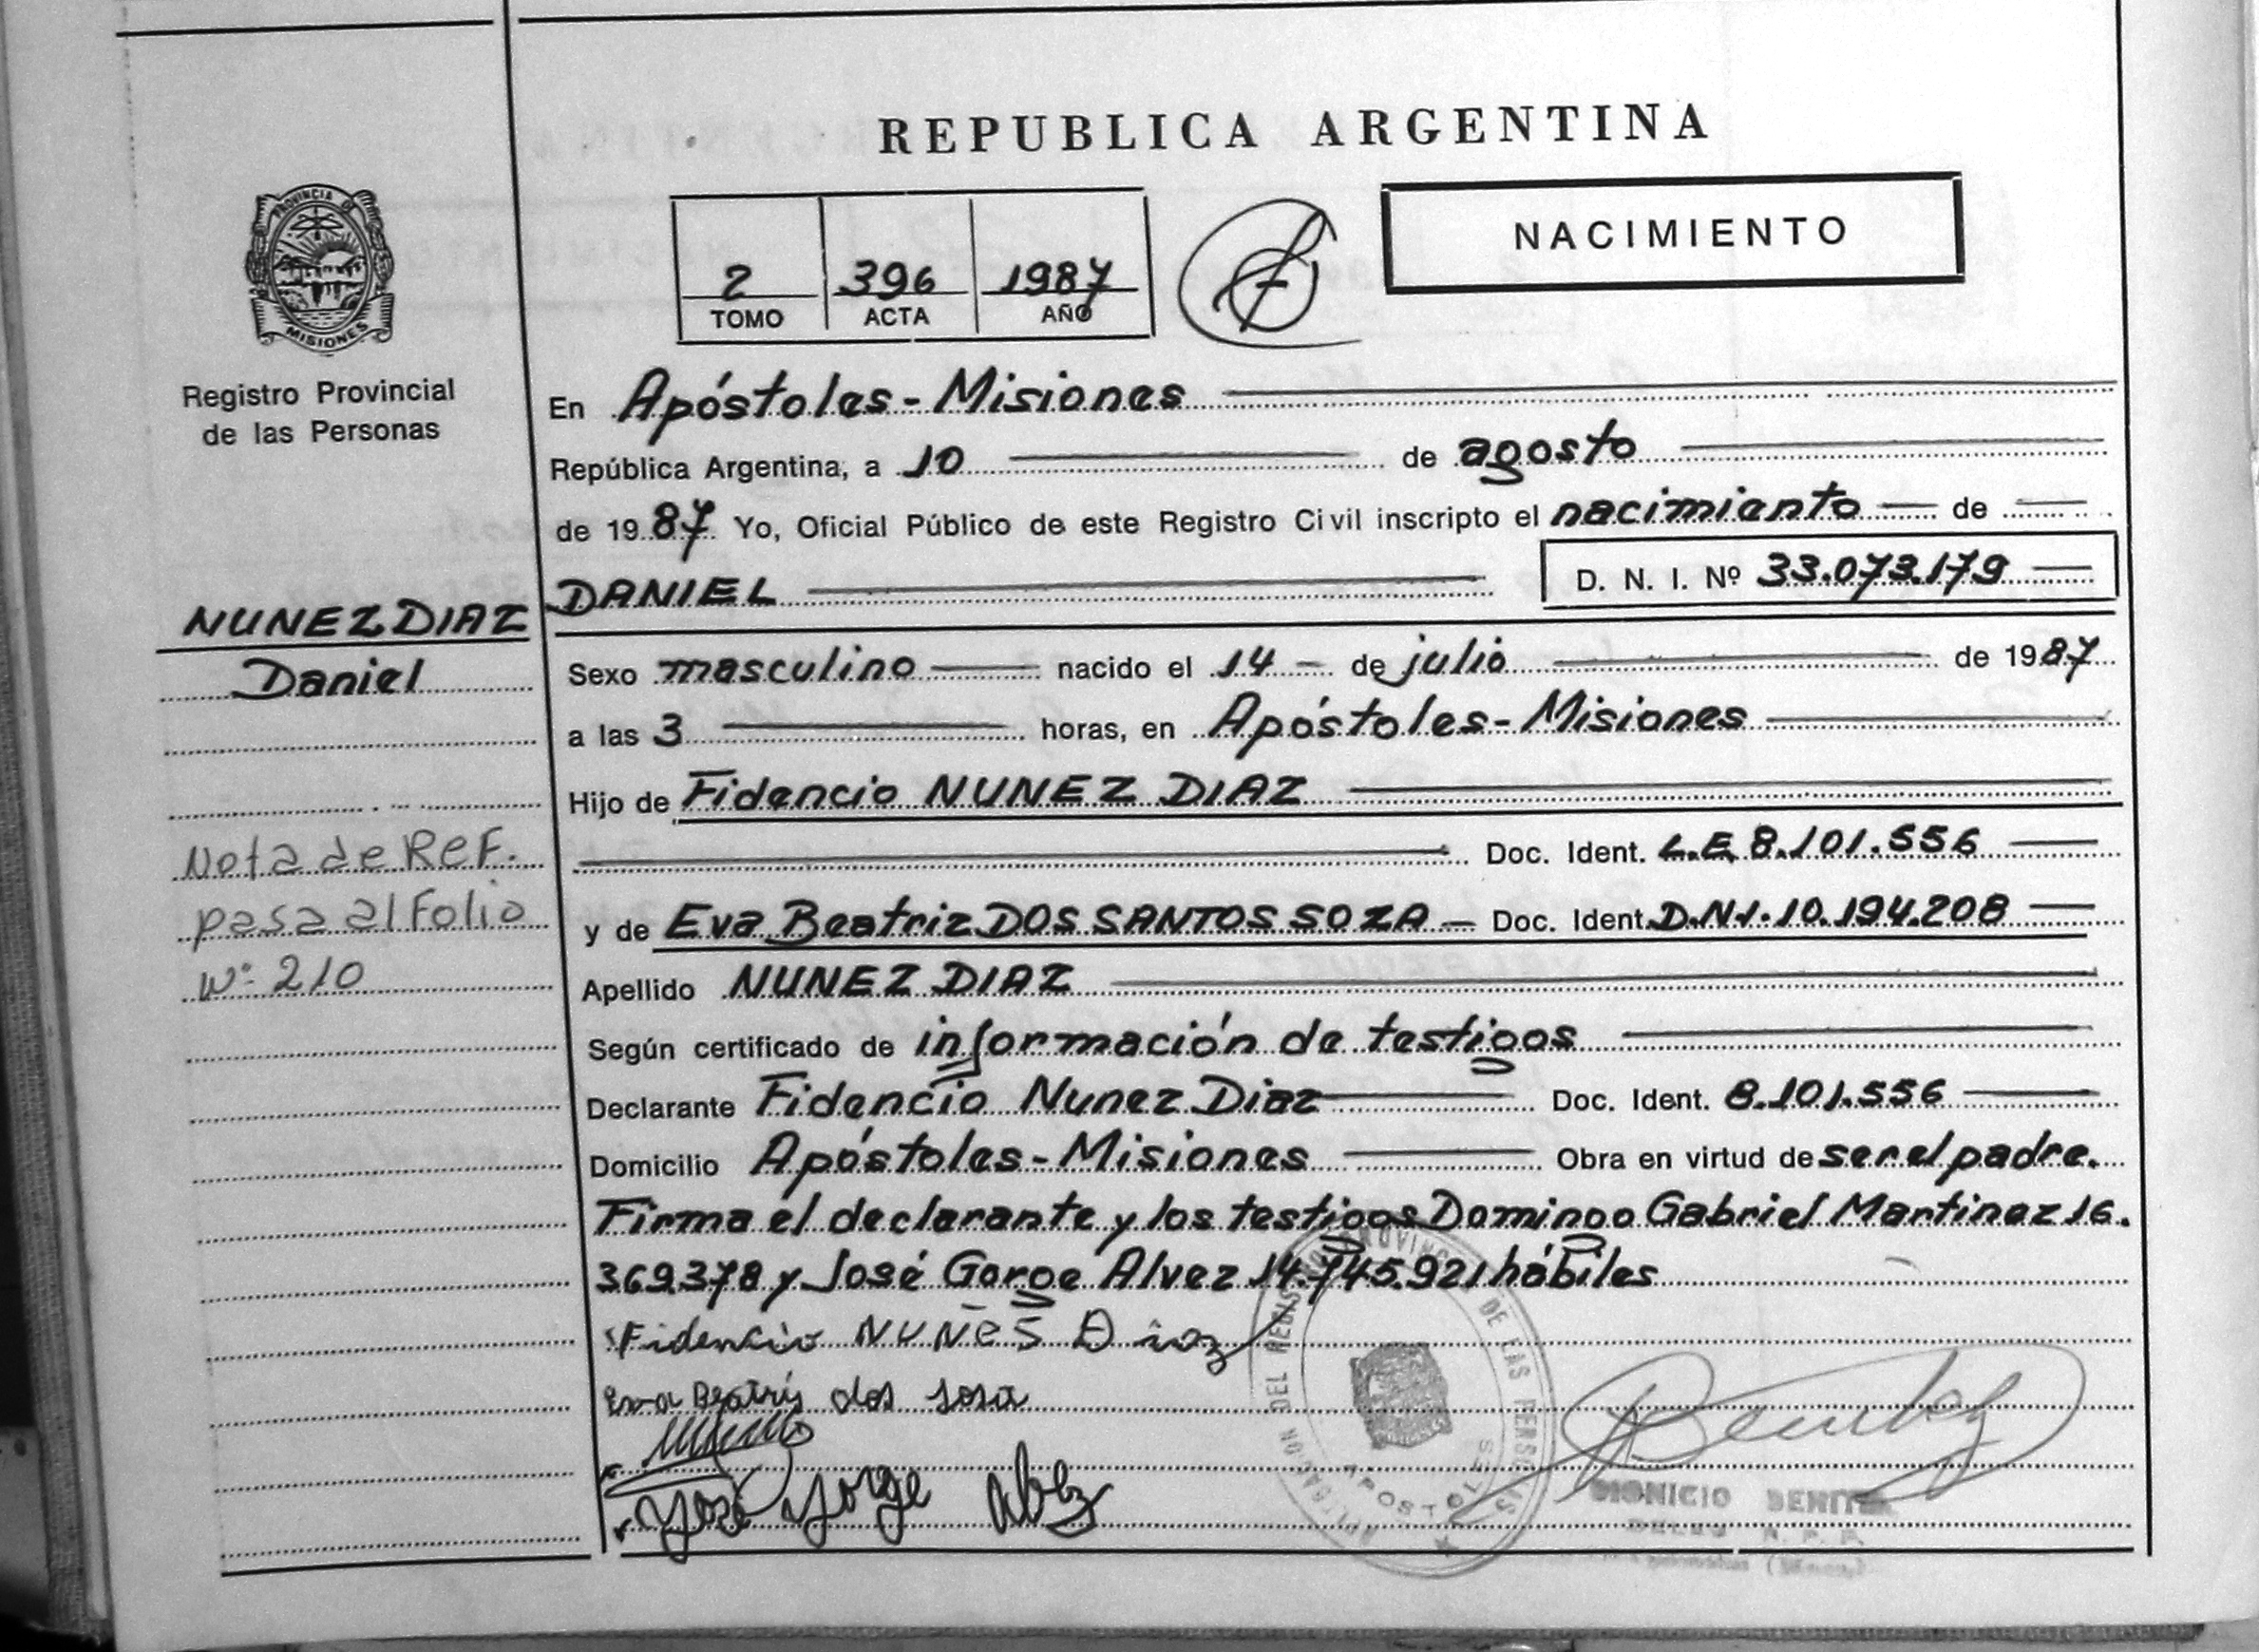 REPUBLICA ARGENTINA
PROVINCIA DE
MISIONES
Registro Provincial
de las Personas
2 396 1987
TOMO ACTA AÑO
NACIMIENTO
En Apóstoles - Misiones
República Argentina, a 10 de agosto
de 1987 Yo, Oficial Público de este Registro Civil inscripto el nacimiento de
DANIEL D. N. I. Nº 33.073.179
NUNEZ DIAZ
Daniel
Sexo masculino nacido el 14 de julio de 1987
a las 3 horas, en Apóstoles - Misiones
Hijo de Fidencio NUNEZ DIAZ
Doc. Ident. L.E. 8.101.556
y de Eva Beatriz DOS SANTOS SOZA Doc. Ident. D.N.I. 10.194.208
Apellido NUNEZ DIAZ
Según certificado de información de testigos
Declarante Fidencio Nunez Diaz Doc. Ident. 8.101.556
Domicilio Apóstoles - Misiones Obra en virtud de ser el padre.
Firma el declarante y los testigos Domingo Gabriel Martinez 16.
369.378 y José Gorge Alvez 14.745.921 hábiles
Nota de Ref.
pasa al Folio
Nº 210
Fidencio NUÑES Diaz
Eva Beatris dos sosa
José Jorge Alvez
DEL REGISTRO PROVINCIAL DE LAS PERSONAS
APOSTOLES
DIONICIO BENITEZ